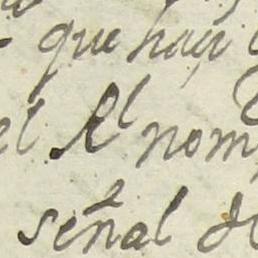 que hay
el Rl nom
señal de